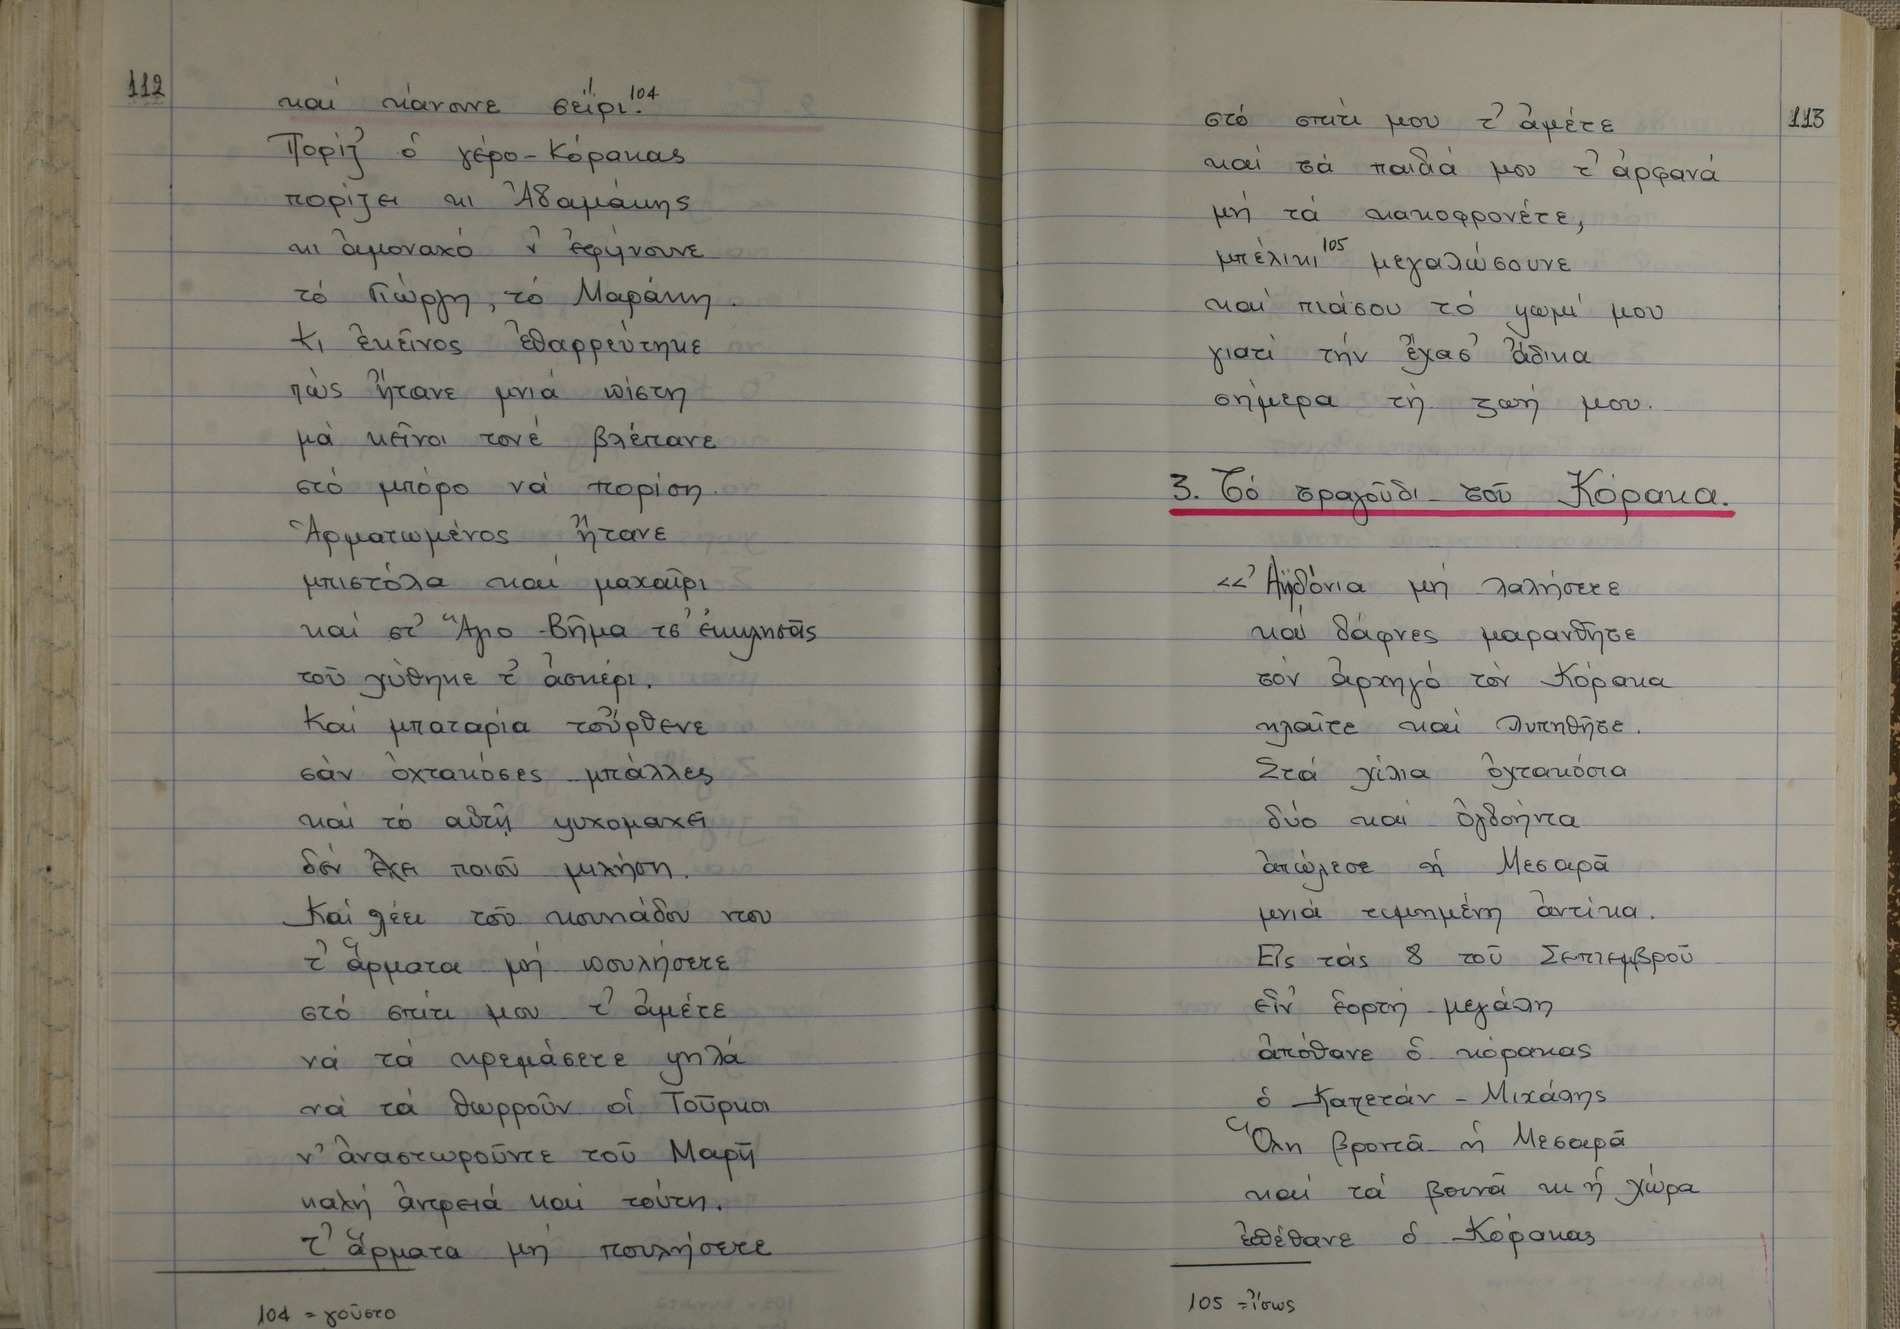 112
καί κάνουνε σεΐρι.104
Πορίζ' ὁ γέρο-Κόρακας
πορίζει κι Ἀδαμάκης
κι ἀμοναχό ν' ἐφήνουνε
τό Γιώργη, τό Μαράκη.
κι ἐκεῖνος ἐθαρρεύτηκε
πώς ἤτανε μνιά πίστη
μά κεῖνοι τονέ βλέπανε
στό μπόρο νά πορίση.
Ἀρματωμένος ἤτανε
μπιστόλα καί μαχαῖρι
καί στ' Ἅγιο-Βῆμα τσ' ἐκκλησᾶς
τοῦ χύθηκε τ' ἀσκέρι.
Καί μπαταρία τοὖρθενε
σάν ὀχτακόσες μπάλλες
καί τό αὐτή ψυχομαχεῖ
δέν ἔχει ποιοῦ μιλήση.
Καί λέει τοῦ κουνιάδου ντου
τ' ἅρματα μή πουλήσετε
στό σπίτι μου τ' ἀμέτε
νά τά κρεμάσετε ψηλά
νά τά θωρροῦν οἱ Τοῦρκοι
ν' ἀναστωροῦντε τοῦ Μαρῆ
καλή ἀντρειά καί τούτη.
Τ' ἅρματα μή πουλήσετε
104 = γοῦστο
113
στό σπίτι μου τ' ἀμέτε
καί τά παιδιά μου τ' ἀρφανά
μή τά κακοφρονέτε,
μπέλικι105 μεγαλώσουνε
καί πιάσου τό ψωμί μου
γιατί τήν ἔχασ' ἄδικα
σήμερα τή ζωή μου.
3. Τό τραγοῦδι τοῦ Κόρακα.
<<Ἀηδόνια μή λαλήσετε
καί δάφνες μαρανθῆτε
τόν ἀρχηγό τόν Κόρακα
κλαῖτε καί λυπηθῆτε.
Στά χίλια ὀχτακόσια
δύο καί ὀγδοήντα
ἀπώλεσε ἡ Μεσαρᾶ
μνιά τιμημένη ἀντίκα.
Εἰς τάς 8 τοῦ Σεπτεμβροῦ
εἶν' ἑορτή μεγάλη
ἀπόθανε ὁ κόρακας
ὁ Καπετάν-Μιχάλης
Ὅλη βροντᾶ ἡ Μεσαρᾶ
καί τά βουνᾶ κι ἡ χώρα
ἐπέθανε ὁ Κόρακας
105 = ἴσως